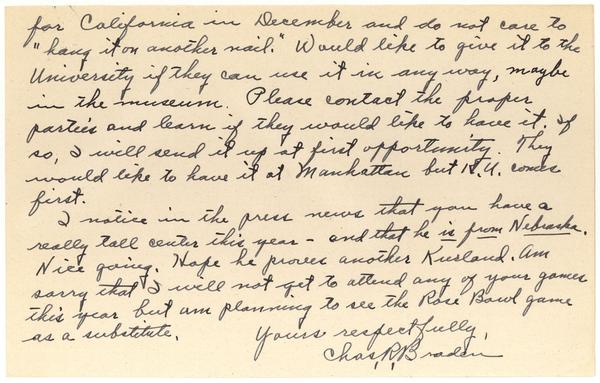 for California in December and do not care to
"hang it on another nail." Would like to give it to the
University if they can use it in any way, maybe
in the museum. Please contact the proper
parties and learn if they would like to have it. If
so, I will send it up at first opportunity. They
would like to have it at Manhattan but K.U. comes
first.
I notice in the press news that you have a
really tall center this year - and that he is from Nebraska.
Nice going. Hope he proves another Kurland. Am
sorry that I will not get to attend any of your games
this year but am planning to see the Rose Bowl game
as a substitute. Yours respectfully,
Chas. R. Braden